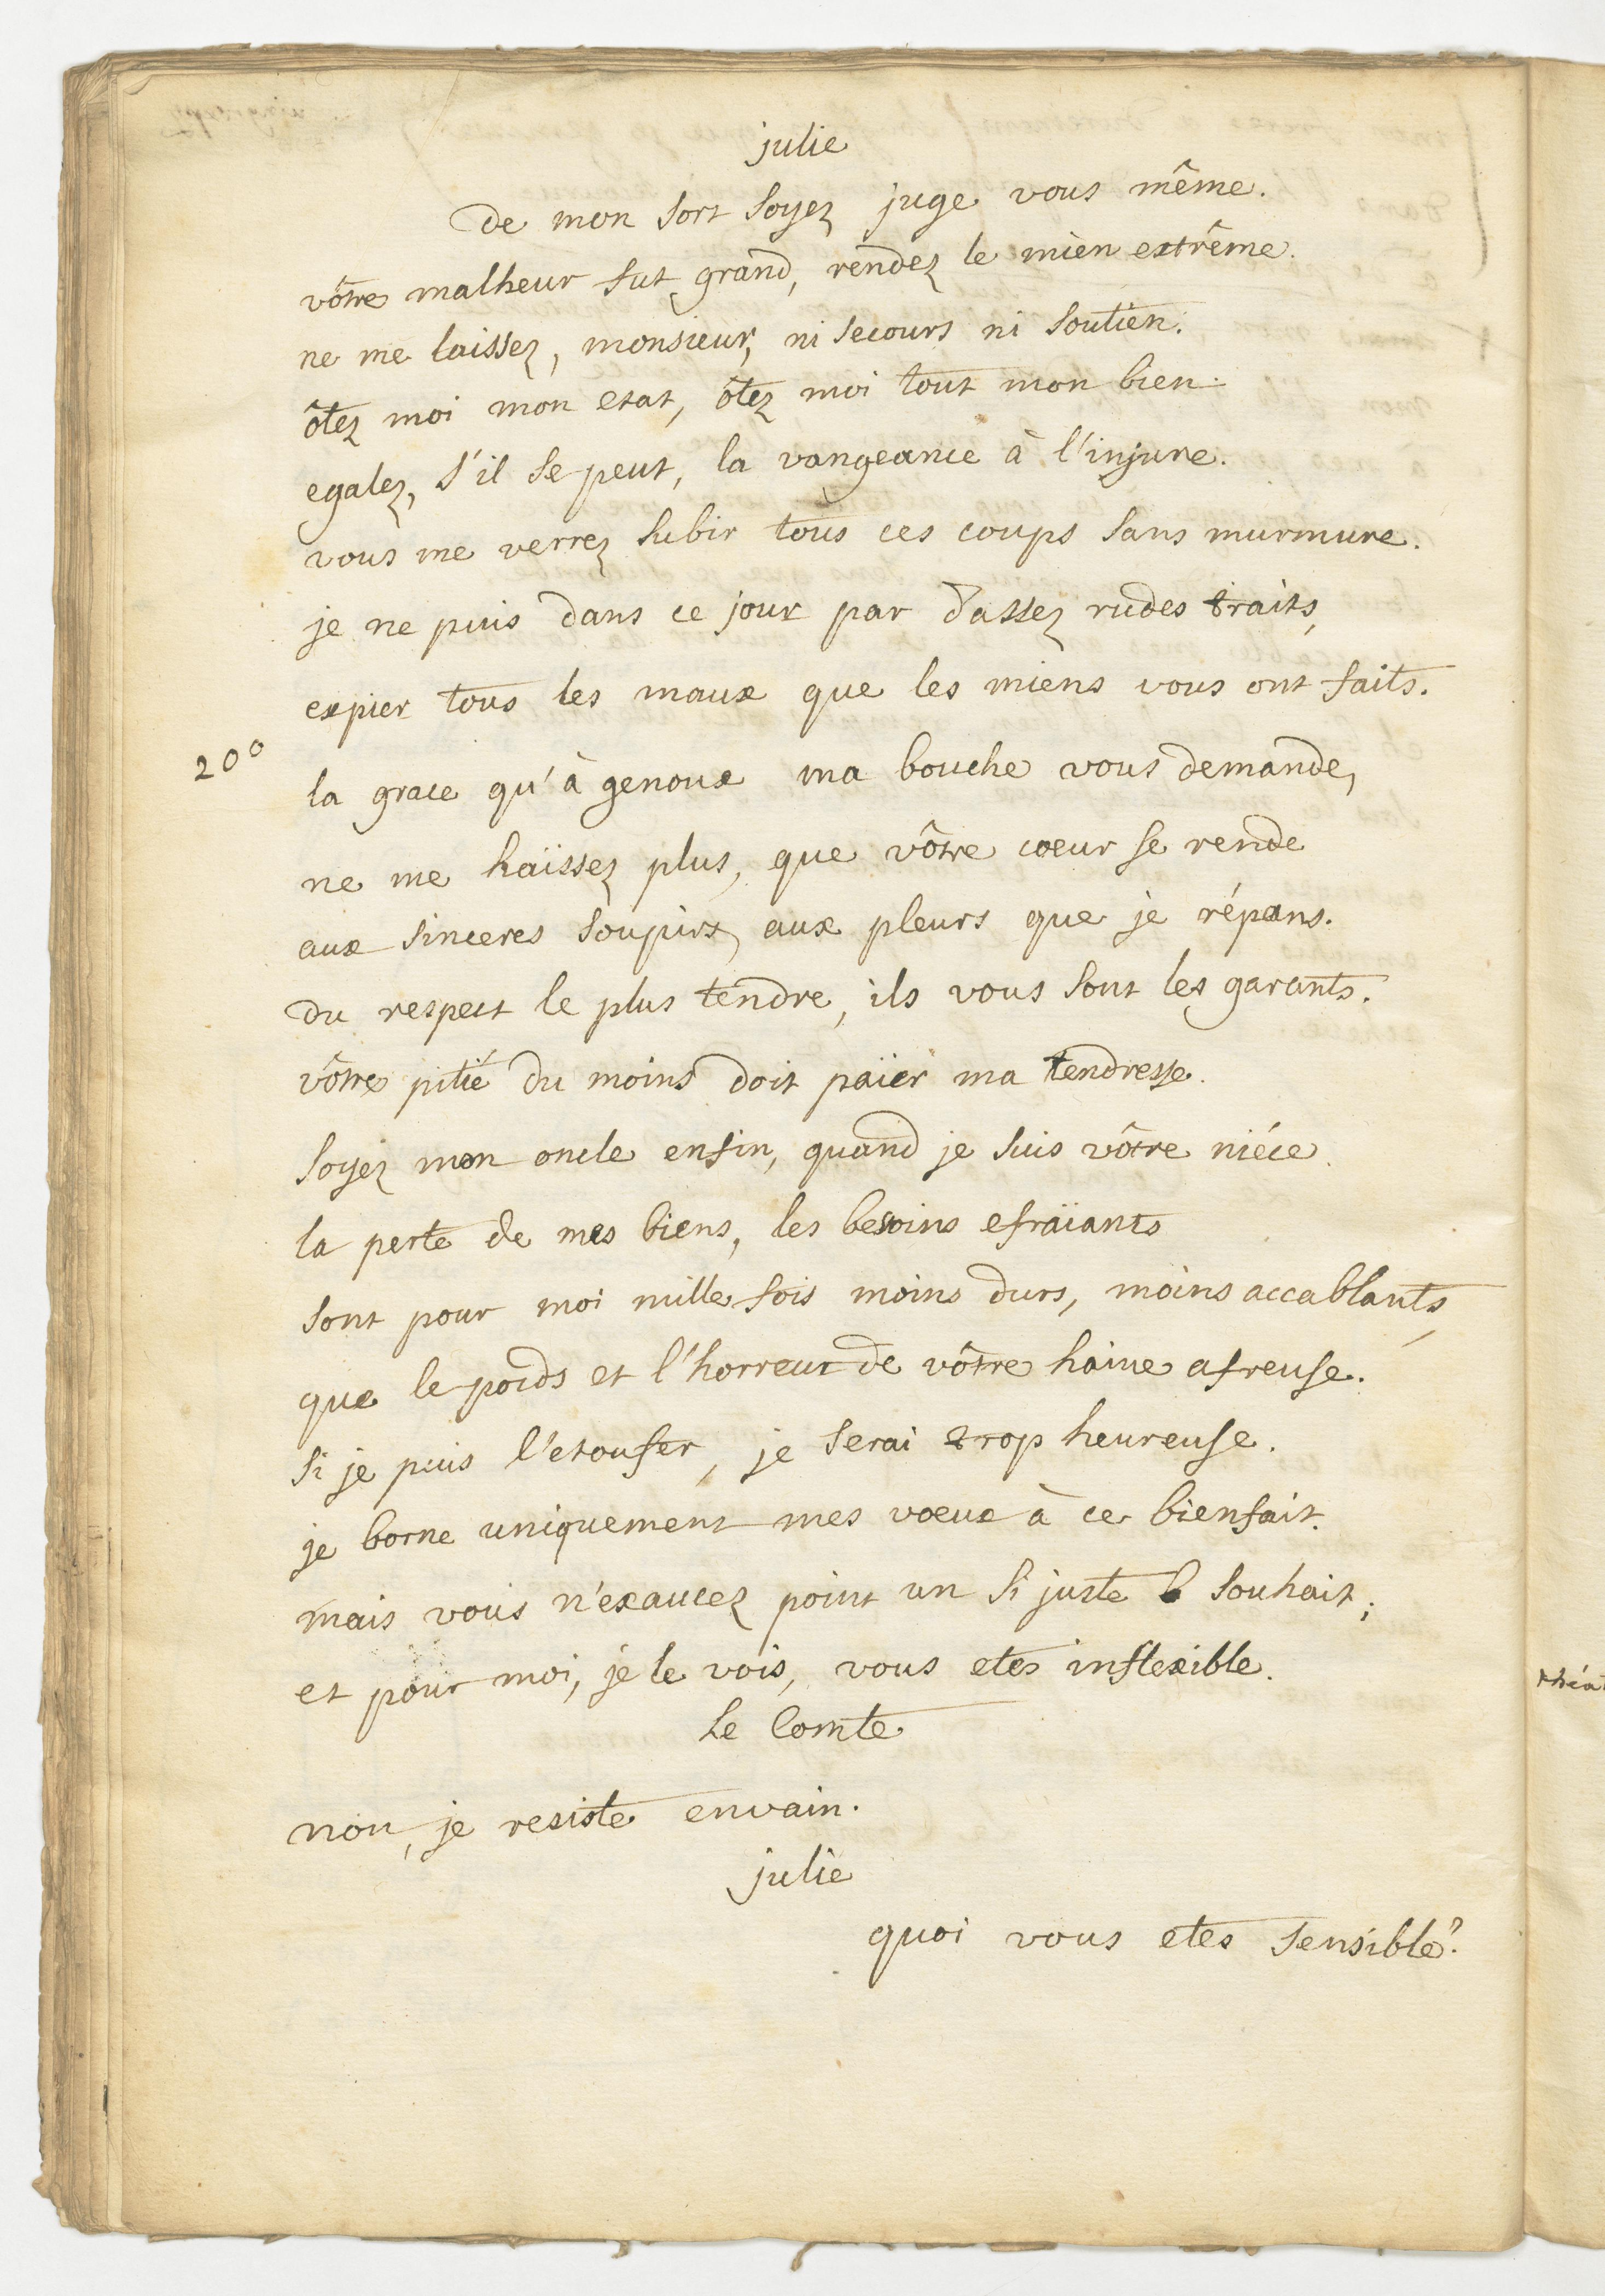 julie
de mon sort soyez juge vous même.
vôtre malheur fut grand, rendez le mien extrême.
ne me laissez, monsieur, ni secours ni soutien.
ôtez moi mon etat, ôtez moi tout mon bien.
egalez, s'il se peut, la vangeance à l'injure.
vous me verrez subir tous ces coups sans murmure.
je ne puis dans ce jour par d'assez rudes traits,
expier tous les maux que les miens vous ont faits.
200
la grace qu'à genoux ma bouche vous demande,
ne me haïssez plus, que vôtre coeur se rende
aux sinceres soupirs, aux pleurs que je répans.
du respect le plus tendre, ils vous sont les garants.
vôtre pitié du moins doit païer ma tendresse.
soyez mon oncle enfin, quand je suis vôtre niéce.
la perte de mes biens, les besoins efraïants
sont pour moi mille fois moins durs, moins accablants,
que le poids et l'horreur de vôtre haine afreuse.
si je puis l'etoufer, je serai trop heureuse.
je borne uniquement mes voeux à ce bienfait.
mais vous n'exaucez point un si juste souhait;
et pour moi, je le vois, vous etes inflexible.
Le Comte
non, je resiste envain.
julie
quoi vous etes sensible?